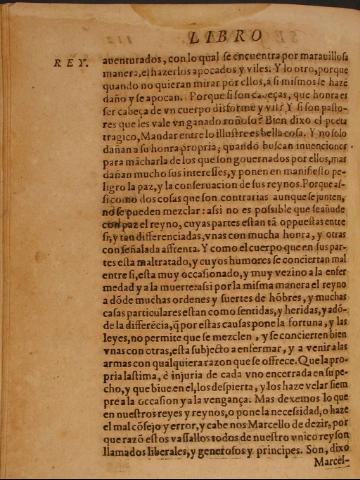 LIBRO
REY.
auenturados, con lo qual se encuentra por marauillosa
manera, el hazerlos apocados y viles. Y lo otro, porque
quando no quieran mirar por ellos, a si mismos se haze
daño y se apocan. Porque si son cabeças, que honra es
ser cabeça de vn cuerpo disforme y vil? Y si son pasto-
res que les vale vn ganado roñoso? Bien dixo el poeta
tragico, Mandar entre lo illustre es bella cosa. Y no solo
dañan a su honra propria, quando buscan inuenciones
para mãcharla de los que son gouernados por ellos, mas
dañan mucho sus interesses, y ponen en manifiesto pe-
ligro la paz, y la conseruacion de sus reynos. Porque as-
si como dos cosas que son contrarias aunque se junten,
no se pueden mezclar: assi no es possible que se añude
con paz el reyno, cuyas partes estan tã oppuestas entre
si, y tan differenciadas, vnas con mucha honra, y otras
con señalada affrenta. Y como el cuerpo que en sus par-
tes esta maltratado, y cuyos humores se conciertan mal
entre si, esta muy occasionado, y muy vezino a la enfer
medad y a la muerte: assi por la misma manera el reyno
a dõde muchas ordenes y suertes de hõbres, y muchas
casas particulares estan como sentidas, y heridas, y adõ-
de la differẽcia, q̃ por estas causas pone la fortuna, y las
leyes, no permite que se mezclen, y se concierten bien
vnas con otras, esta subjecto a enfermar, y a venir a las
armas con qualquiera razon que se offrece. Que la pro-
pria lastima, è injuria de cada vno encerrada en su pe-
cho, y que biue en el, los despierta, y los haze velar siem
pre a la occasion y a la vengança. Mas dexemos lo que
en nuestros reyes y reynos, o pone la necessidad, o haze
el mal cõsejo y error, y cabe nos Marcello de dezir, por
que razõ estos vassallos todos de nuestro vnico rey son
llamados liberales, y generosos y principes. Son, dixo
Marcel-